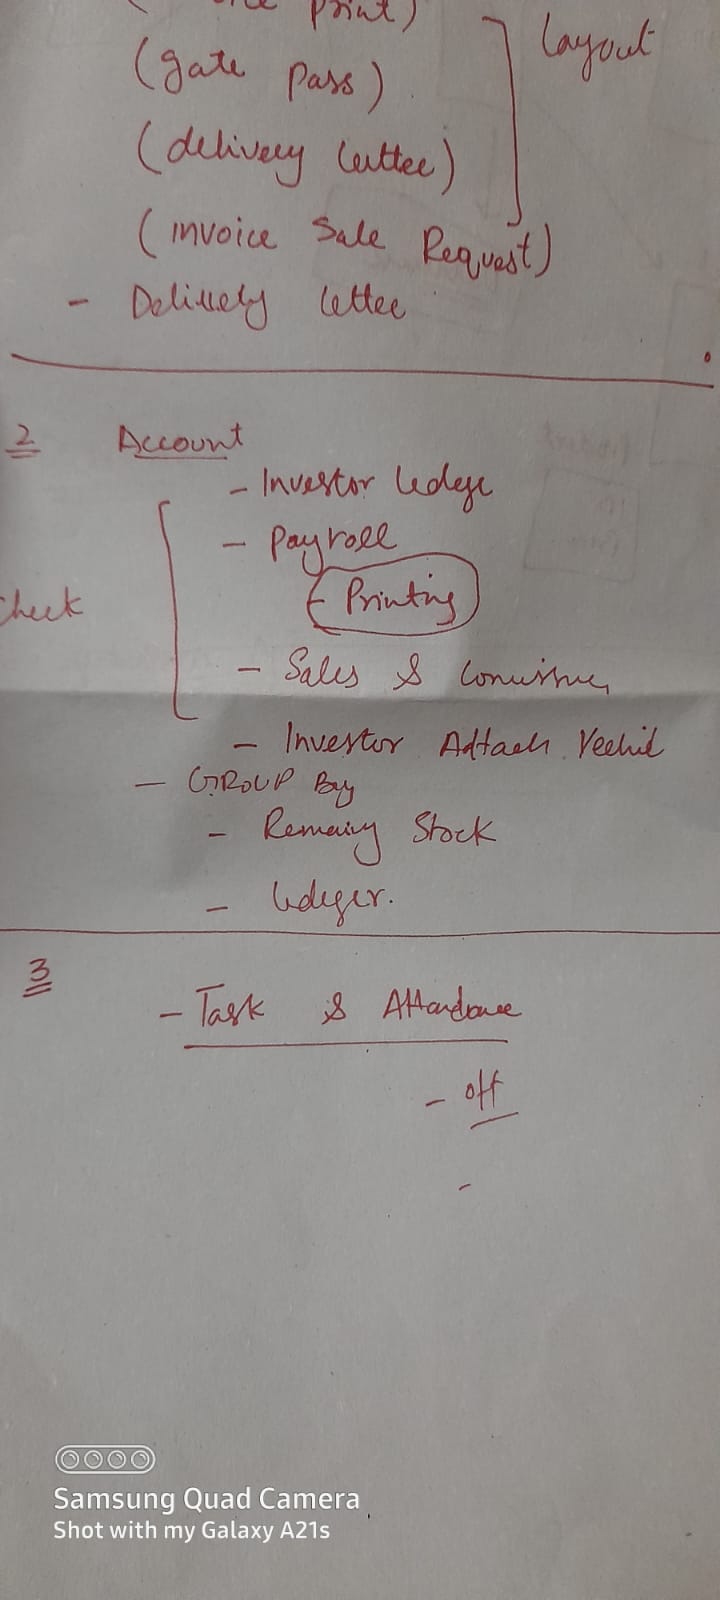 print)
(gate pass)
layout
(delivery letter)
(invoice Sale Request)
- Delivery letter
2 Account
- Investor ledge
- Payroll
check
- Printing
- Sales &
- Investor Attach Vechil
- GROUP Buy
- Remaing Stock
- ledeger.
3
- Task & Attandance
- off
-
Samsung Quad Camera
Shot with my Galaxy A21s